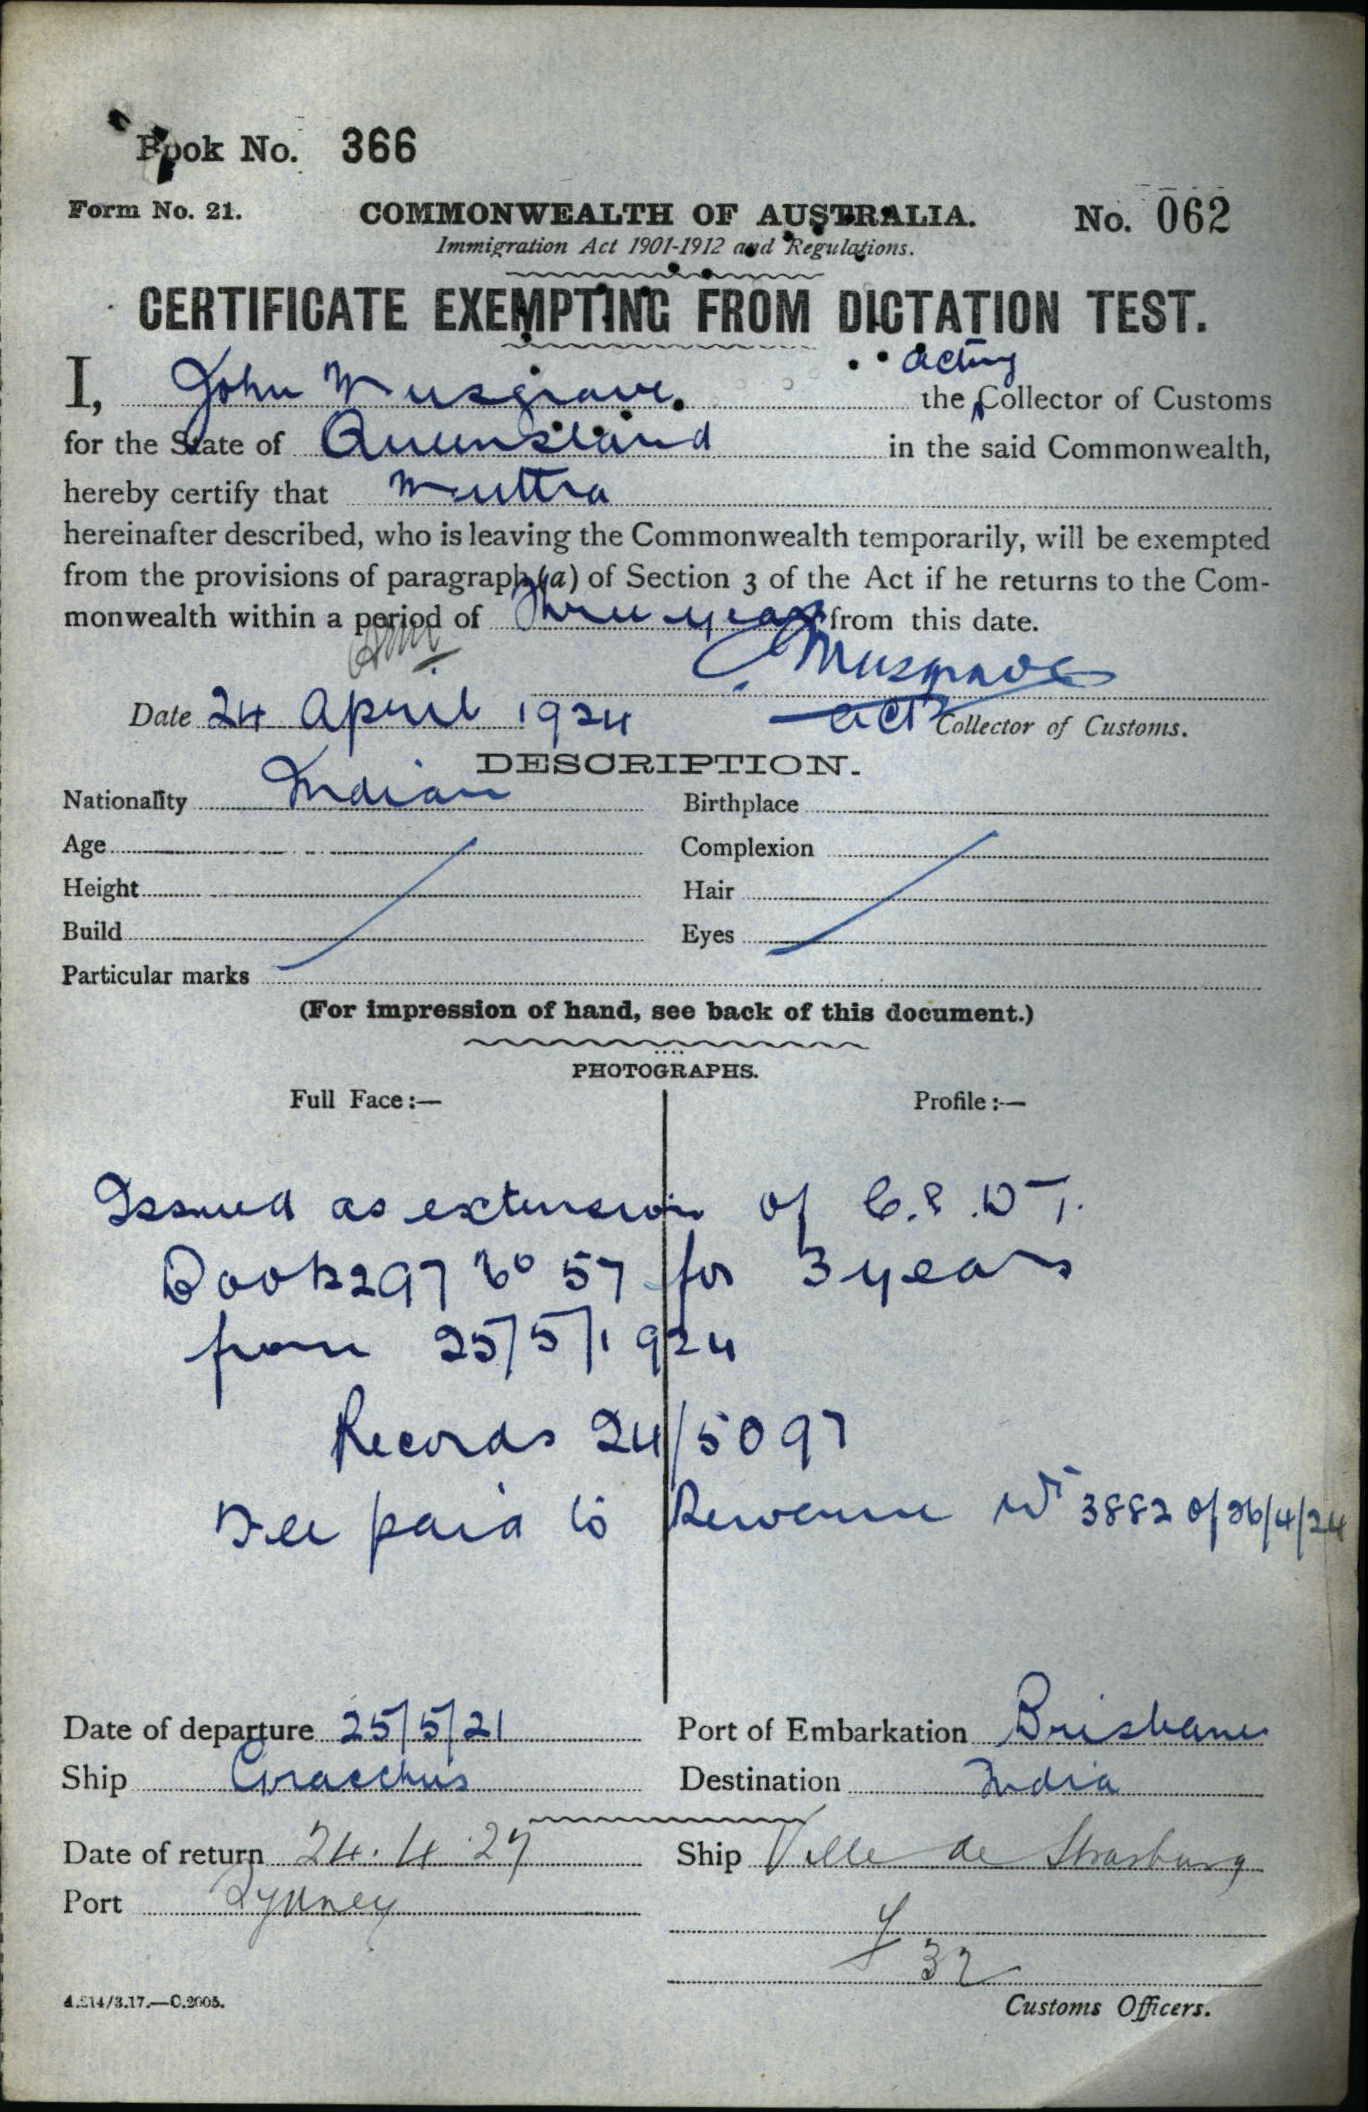 Book No. 366
Form No. 21. COMMONWEALTH OF AUSTRALIA. No. 062
Immigration Act 1901-1912 and Regulations.
CERTIFICATE EXEMPTING FROM DICTATION TEST.
acting
I, John Musgrave. the Collector of Customs
for the State of Queensland in the said Commonwealth,
hereby certify that Muttra
hereinafter described, who is leaving the Commonwealth temporarily, will be exempted
from the provisions of paragraph (a) of Section 3 of the Act if he returns to the Com-
monwealth within a period of three years from this date.
Musgrave
Date 24 April 1924 Actg Collector of Customs.
DESCRIPTION.
Nationality Indian Birthplace
Age Complexion
Height Hair
Build Eyes
Particular marks
(For impression of hand, see back of this document.)
PHOTOGRAPHS.
Full Face:— Profile:—
Issued as extension of C.E.D.T.
Book 297 No 57 for 3 years
from 25/5/1924
Records 24/5097
Fee paid to Revenue 3882 of 26/4/24
Date of departure 25/5/21 Port of Embarkation Brisbane
Ship Gracchus Destination India
Date of return 24.4.27 Ship Ville de Strasburg
Port Sydney
32
A.214/3.17.—C.2005. Customs Officers.